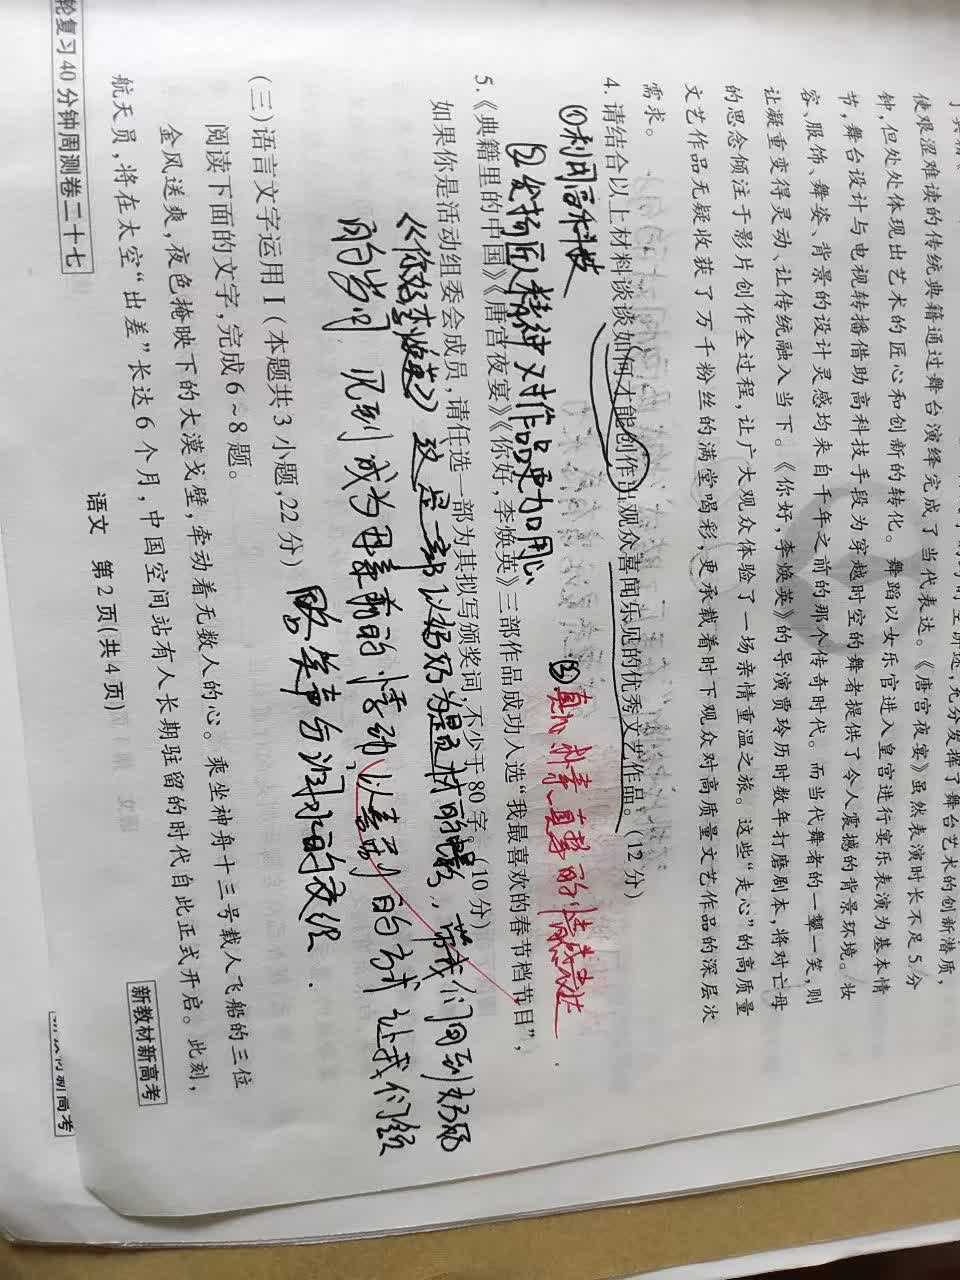 使艰涩难读的传统典籍通过舞台演绎完成了当代表达。《唐宫夜宴》虽然表演时长不足5分
钟，但处处体现出艺术的匠心和创新的转化。舞蹈以女乐官进入皇宫进行宴乐表演为基本情
节，舞台设计与电视转播借助高科技手段为穿越时空的舞者提供了令人震撼的背景环境。妆
容、服饰、舞姿、背景的设计灵感均来自千年之前的那个传奇时代。而当代舞者的一颦一笑，则
让凝重变得灵动、让传统融入当下。《你好，李焕英》的导演贾玲历时数年打磨剧本，将对亡母
的思念倾注于影片创作全过程，让广大观众体验了一场亲情重温之旅。这些“走心”的高质量
文艺作品无疑收获了万千粉丝的满堂喝彩，更承载着时下观众对高质量文艺作品的深层次
需求。
4. 请结合以上材料谈谈如何才能创作出观众喜闻乐见的优秀文艺作品。(12分)
①利用高科技
②发扬匠人精神 对作品更加用心
③真心 朴素、真挚的情感表达
5.《典籍里的中国》《唐宫夜宴》《你好，李焕英》三部作品成功入选“我最喜欢的春节档节目”，
如果你是活动组委会成员，请任选一部为其拟写颁奖词，不少于80字。(10分)
《你好李焕英》这是一部以妈妈为题材的电影，带我们回到妈妈
的岁月 见到成为母亲前的 悸动，以喜剧的方式 让我们经
历笑声与泪水的交织.
(三)语言文字运用Ⅰ(本题共3小题，22分)
阅读下面的文字，完成6~8题。
金风送爽，夜色掩映下的大漠戈壁，牵动着无数人的心。乘坐神舟十三号载人飞船的三位
航天员，将在太空“出差”长达6个月，中国空间站有人长期驻留的时代自此正式开启。此刻，
语文 第2页(共4页)
新教材新高考
轮复习40分钟周测卷二十七
新高考